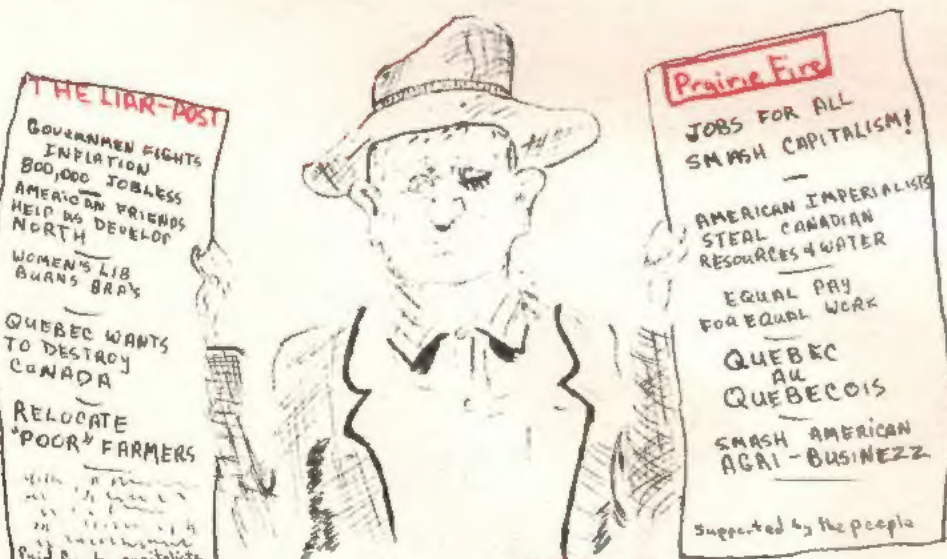 THE LIAR-POST
GOVERNMEN FIGHTS
INFLATION
800,000 JOBLESS
AMERICAN FRIENDS
HELP US DEVELOP
NORTH
WOMEN'S LIB
BURNS BRA'S
QUEBEC WANTS
TO DESTROY
CANADA
RELOCATE
"POOR" FARMERS
Paid for by capitalists
Prairie Fire
JOBS FOR ALL
SMASH CAPITALISM!
AMERICAN IMPERIALISTS
STEAL CANADIAN
RESOURCES & WATER
EQUAL PAY
FOR EQUAL WORK
QUEBEC
AU
QUEBECOIS
SMASH AMERICAN
AGRI-BUSINEZZ
Supported by the people